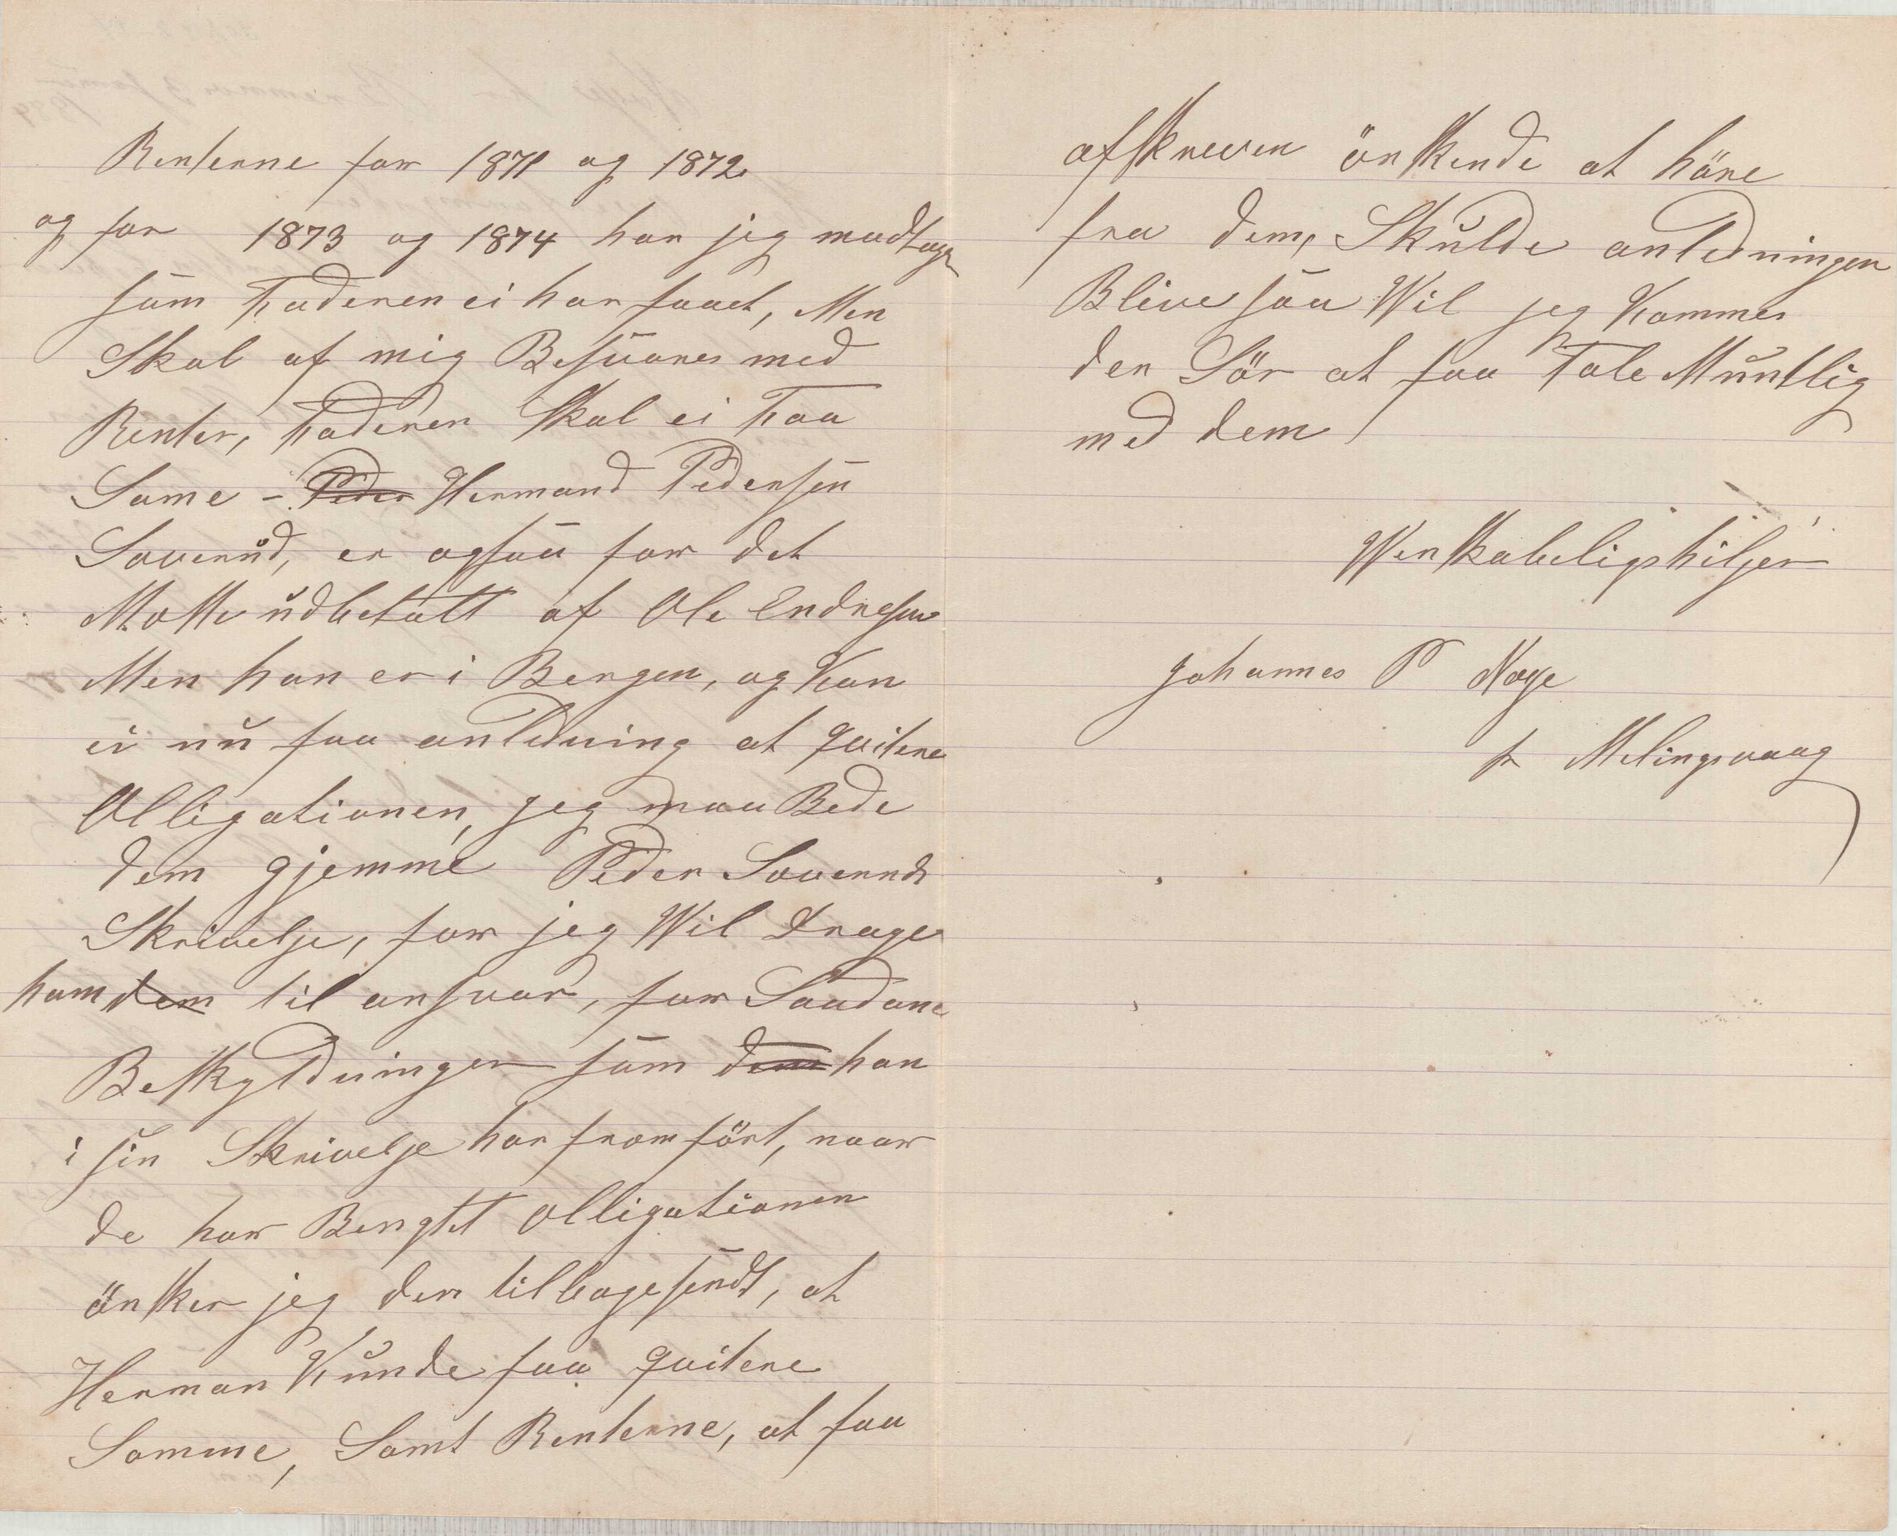 Renterne for 1871 og 1872.
og for 1873 og 1874 har jeg modtaget
som Faderen ei har faaet, Men
Skal af mig Besvares med
Renter, Faderen Skal ei Faa
Same – Peder Hermand Pedersen
Loverud, er ogsaa for det
Motte udbetalt af Ole Endresen
Men han er i Bergen, og Kan
ei nu faa anledning at qvitere
Olligationen, jeg maa Bede
dem gjemme Peder Loveruds
Skrivelse, for jeg Wil drage
ham dem til ansvar, for Saadane
Beskyldninger som dem han
i sin Skrivelse har fromfört, naar
de har Bengtet olligationen
önsker jeg den tilbagesendt, at
Herman Kunde faa qvitere
Somme, Samt Renterne, at faa
afskreven önskende at häre
fra dem, Skulde anledningen
Blive saa Wil jeg Kommer
der Sör at faa Tale Muntlig
med dem
Wenskabeligs hilsen
Johannes P Nage
pr Melingsvaag